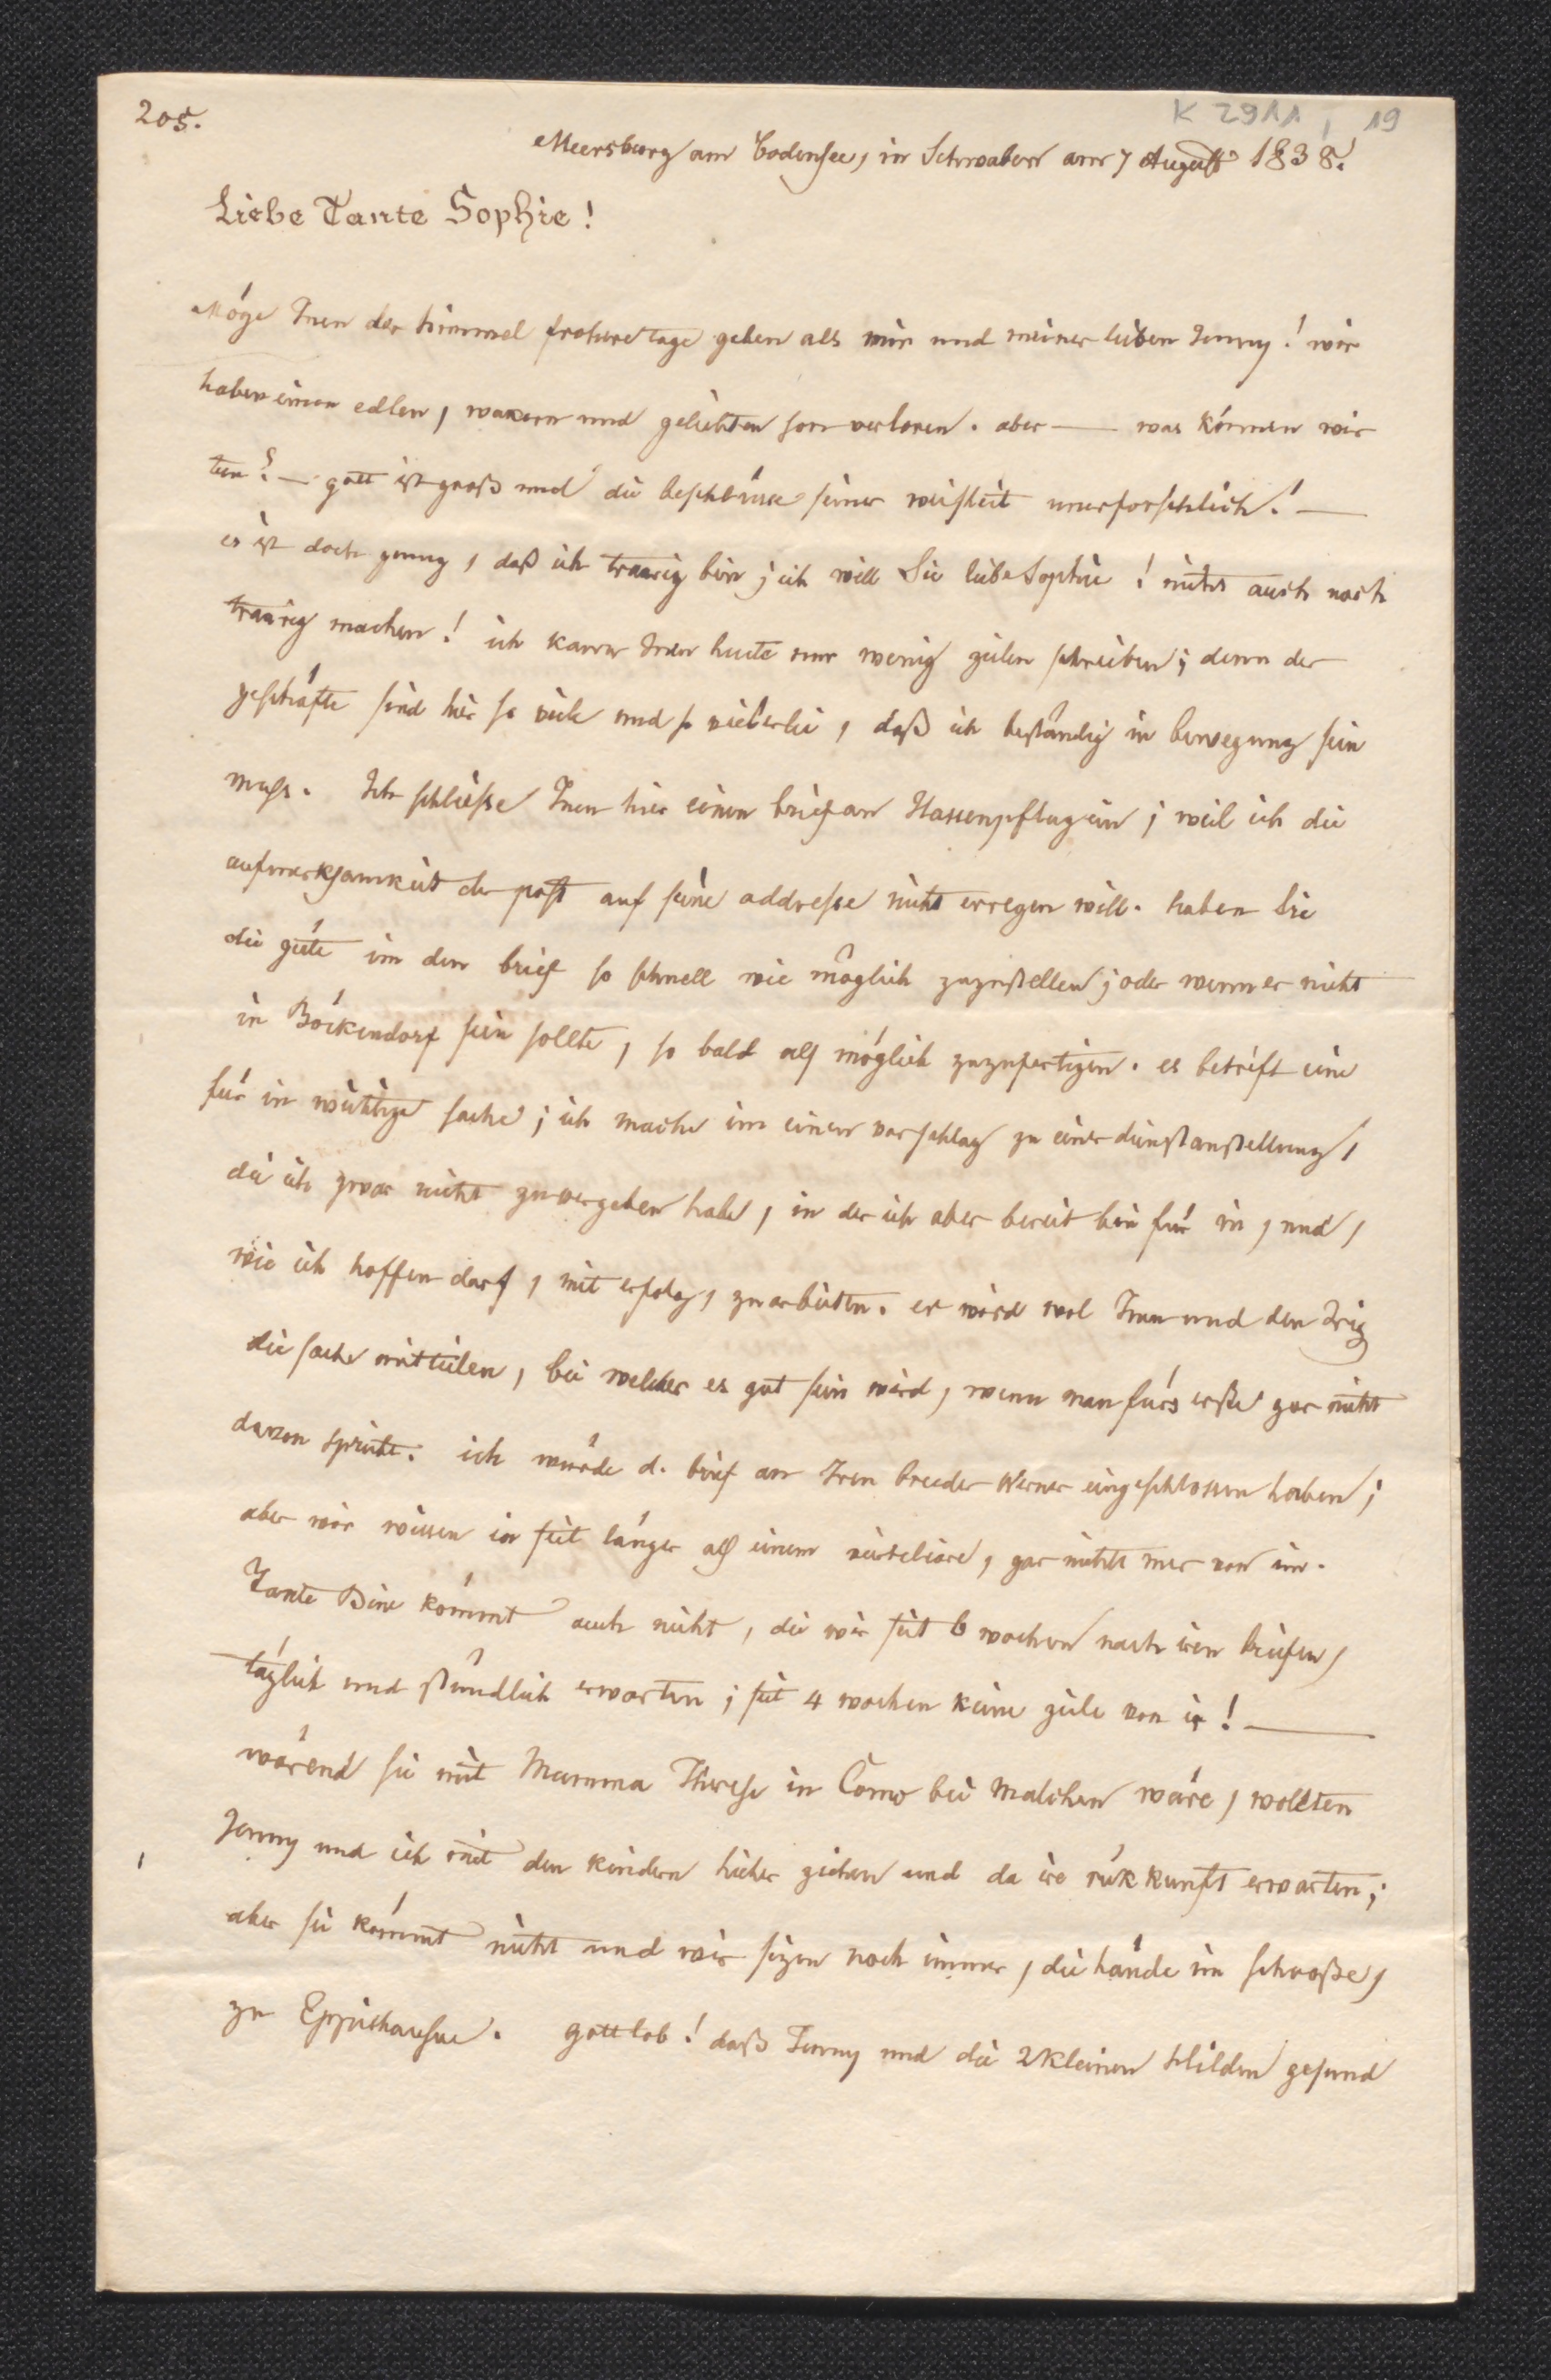 205.
K 2911, 19
Meersburg am Bodensee, in Schwaben am 7 August 1838.
Liebe Tante Sophie!
Möge Inen der himmel frohere tage geben als mir und meiner lieben Jenny! wir
haben einen edlen, wakern und geliebten son verloren. aber — was können wir
tun? — gott ist groß und die beschlüsse seiner weisheit unerforschlich! —
es ist doch genug, daß ich traurig bin; ich will Sie liebe Sophie! nicht auch noch
traurig machen! ich kann Inen heute nur wenig zeilen schreiben; denn der
geschäfte sind hier so viele und so vielerlei, daß ich beständig in bewegung sein
muss. Ich schliesse Inen hier einen brief an Hassenpflug ein; weil ich die
aufmerksamkeit der post auf seine addresse nicht erregen will. haben Sie
die güte im den brief so schnell wie möglich zuzustellen; oder wenn er nicht
in Bökendorf sein sollte, so bald als möglich zuzufertigen. es betrift eine
für in wichtige sache; ich mache im einen vorschlag zu einer dienstanstellung,
die ich zwar nicht zu vergeben habe, in der ich aber bereit bin für in, und,
wie ich hoffen darf, mit erfolg, zu arbeiten. er wird wol Inen und den Irig
die sache mitteilen, bei welcher es gut sein wird, wenn man fürs erste gar nicht
davon spricht. ich würde d. brief an Iren bruder Werner eingeschlossen haben;
aber wir wissen ia seit länger als einem vierteliare, gar nichts mer von im.
Tante Bine kömmt auch nicht, die wir seit 6 wochen nach iren briefen,
täglich und stündlich erwarten; seit 4 wochen keine zeile von ir! —
wärend sie mit Mamma Therese in Como bei Malchen wäre, wollten
Jenny und ich mit den kindern hieher ziehen und da ire rükkunft erwarten;
aber sie kömmt nicht und wir sizen noch immer, die hände im schooße,
zu Eppishausen. gottlob! daß Jenny und die 2 kleinen Hilden gesund